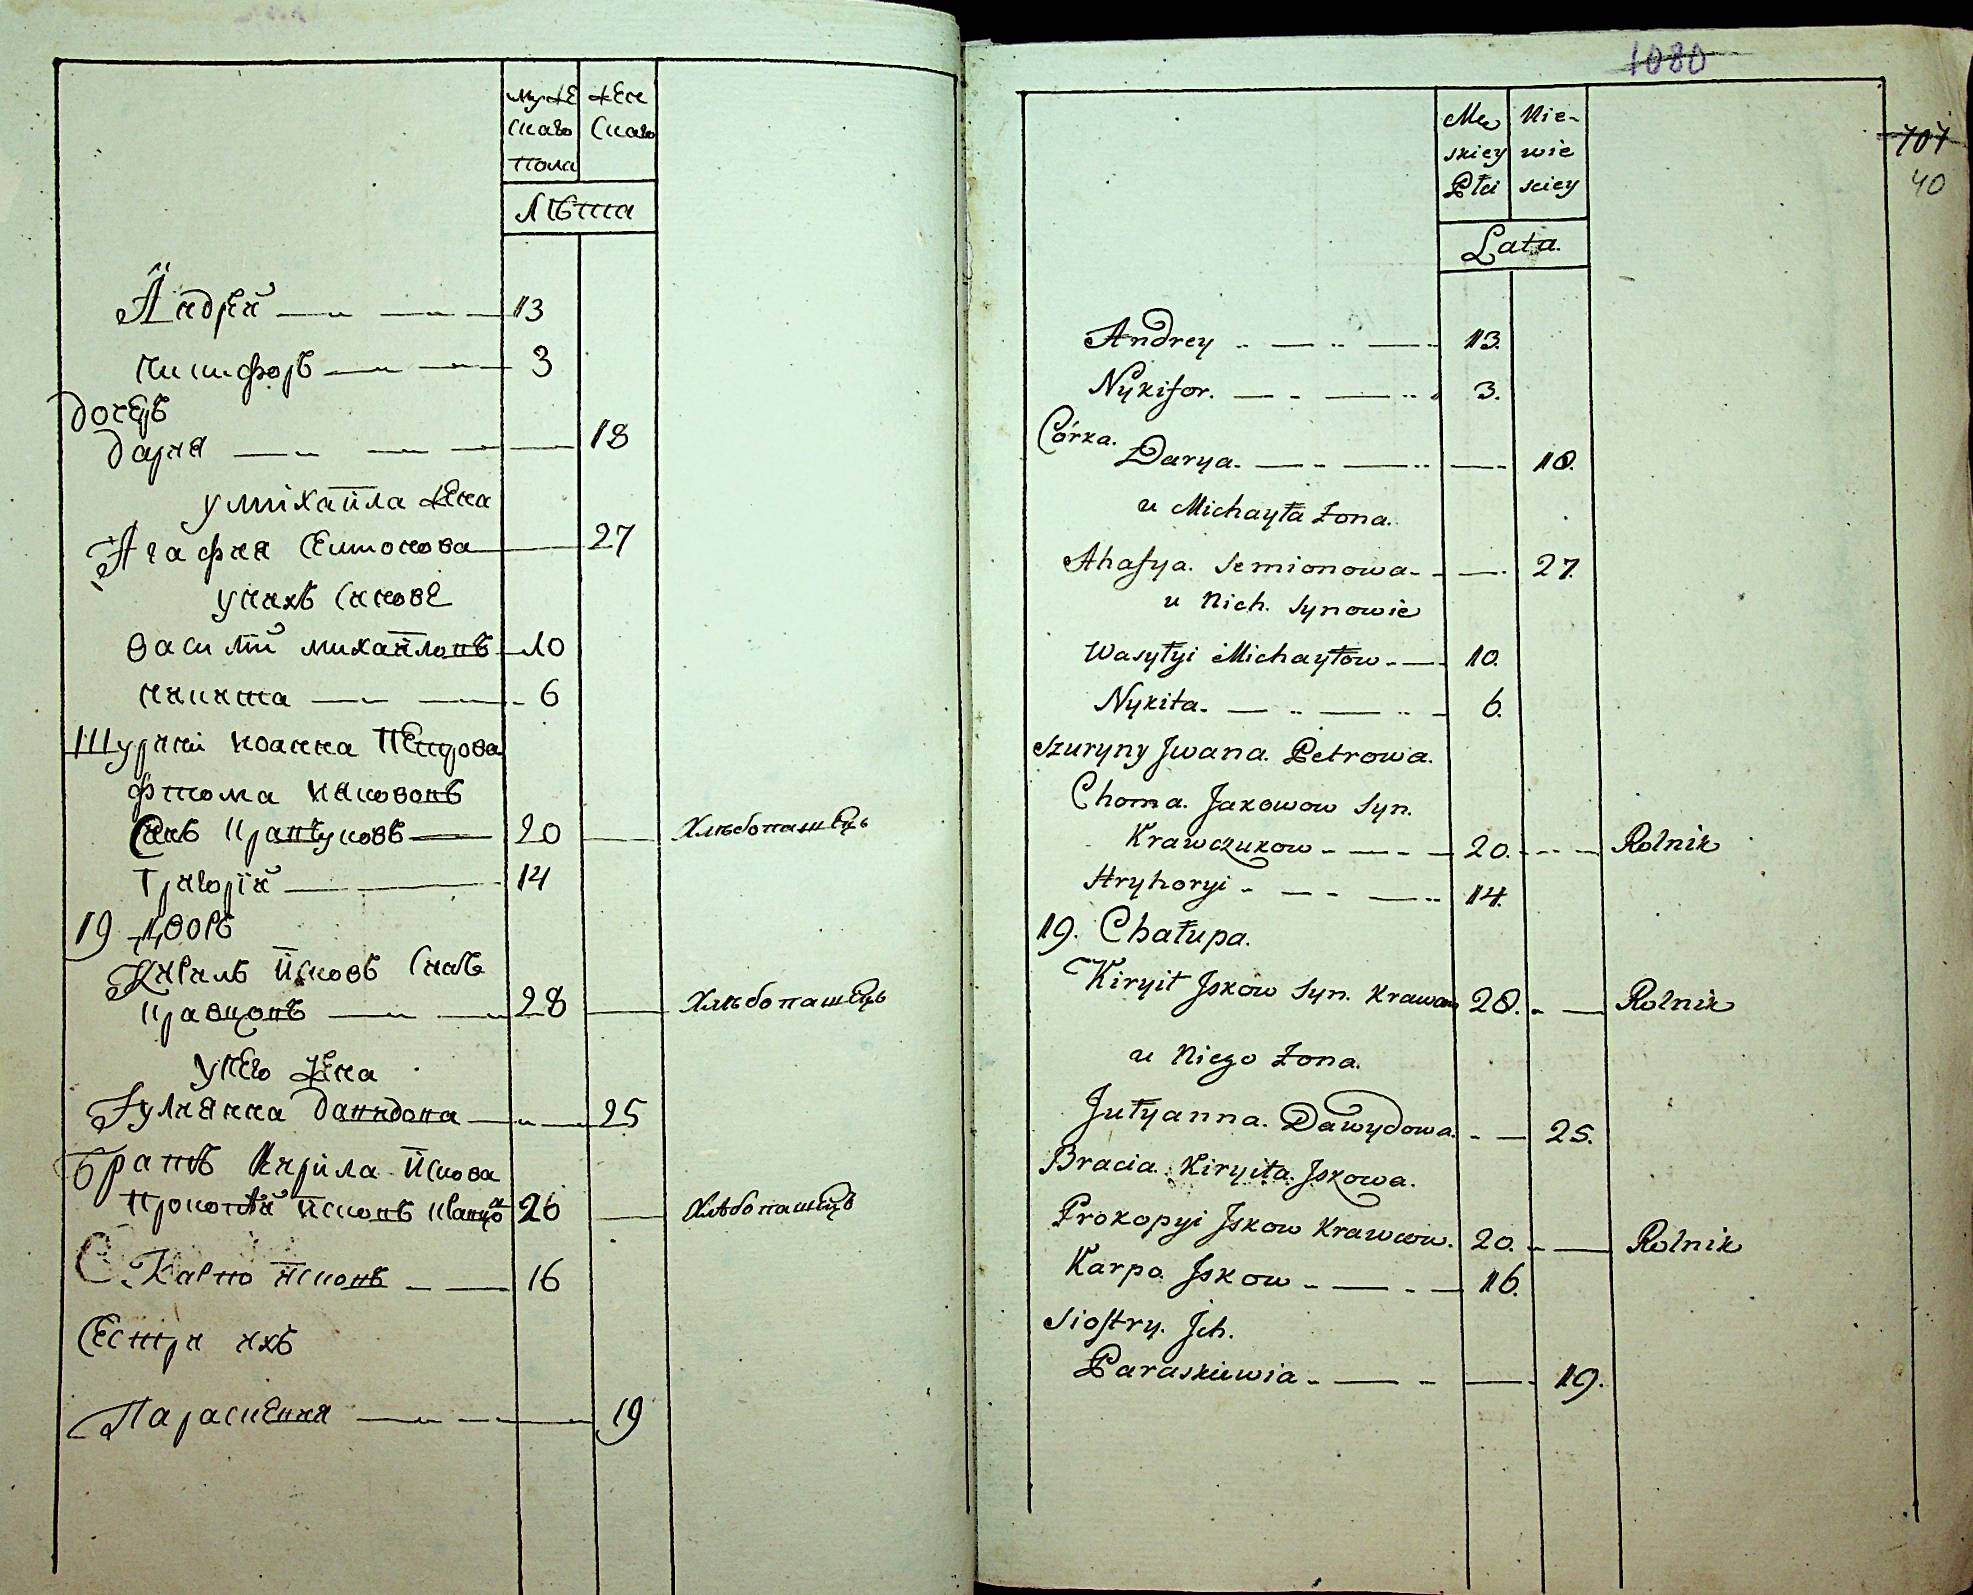 муже
скаго
пола
жен
скаго
лѣта
Андрей 13
никифоръ 3
дочеръ
дария 18
у михайла жена
Агафия Семионова 27
у нихъ Синове
василій михайловъ 10
никита 6
Шурини иоанна Петрова
фтома иакововъ
Синъ кравчуковъ 20 Хлѣбопашець
Григорій 14
19 дворъ
Кирилъ иековъ Синъ
кравцовъ 28 Хлѣбопашець
у него жена
Іулианна давидова 25
братъ кирила иского
прокопій исковъ кравцо 26 Хлѣбопашецъ
Карпо исковъ 16
Сестри ихъ
Параскевия 19
1080
707
40
Mę
skiey
Płci
Nie-
wie
sciey
Lata.
Andrey 13.
Nykifor. 3.
Córka.
Darya. 18.
u Michayła Żona.
Ahafya. Semionowa 27.
u Nich. Synowie
Wasyłyi Michayłow 10.
Nykita. 6.
Szuryny Jwana. Petrowa.
Choma. Jakowow Syn.
Krawczukow 20. Rolnik
Hryhoryi 14.
19. Chałupa.
Kiryił Jskow Syn. Krawcow 28. Rolnik
u Niego Żona.
Jułyanna. Dawydowa. 25.
Bracia. Kiryiła. Jskowa.
Prokopyi Jskow Krawcow. 20. Rolnik
Karpo. Jskow 16.
Siostry. Jch.
Paraskiewia 19.